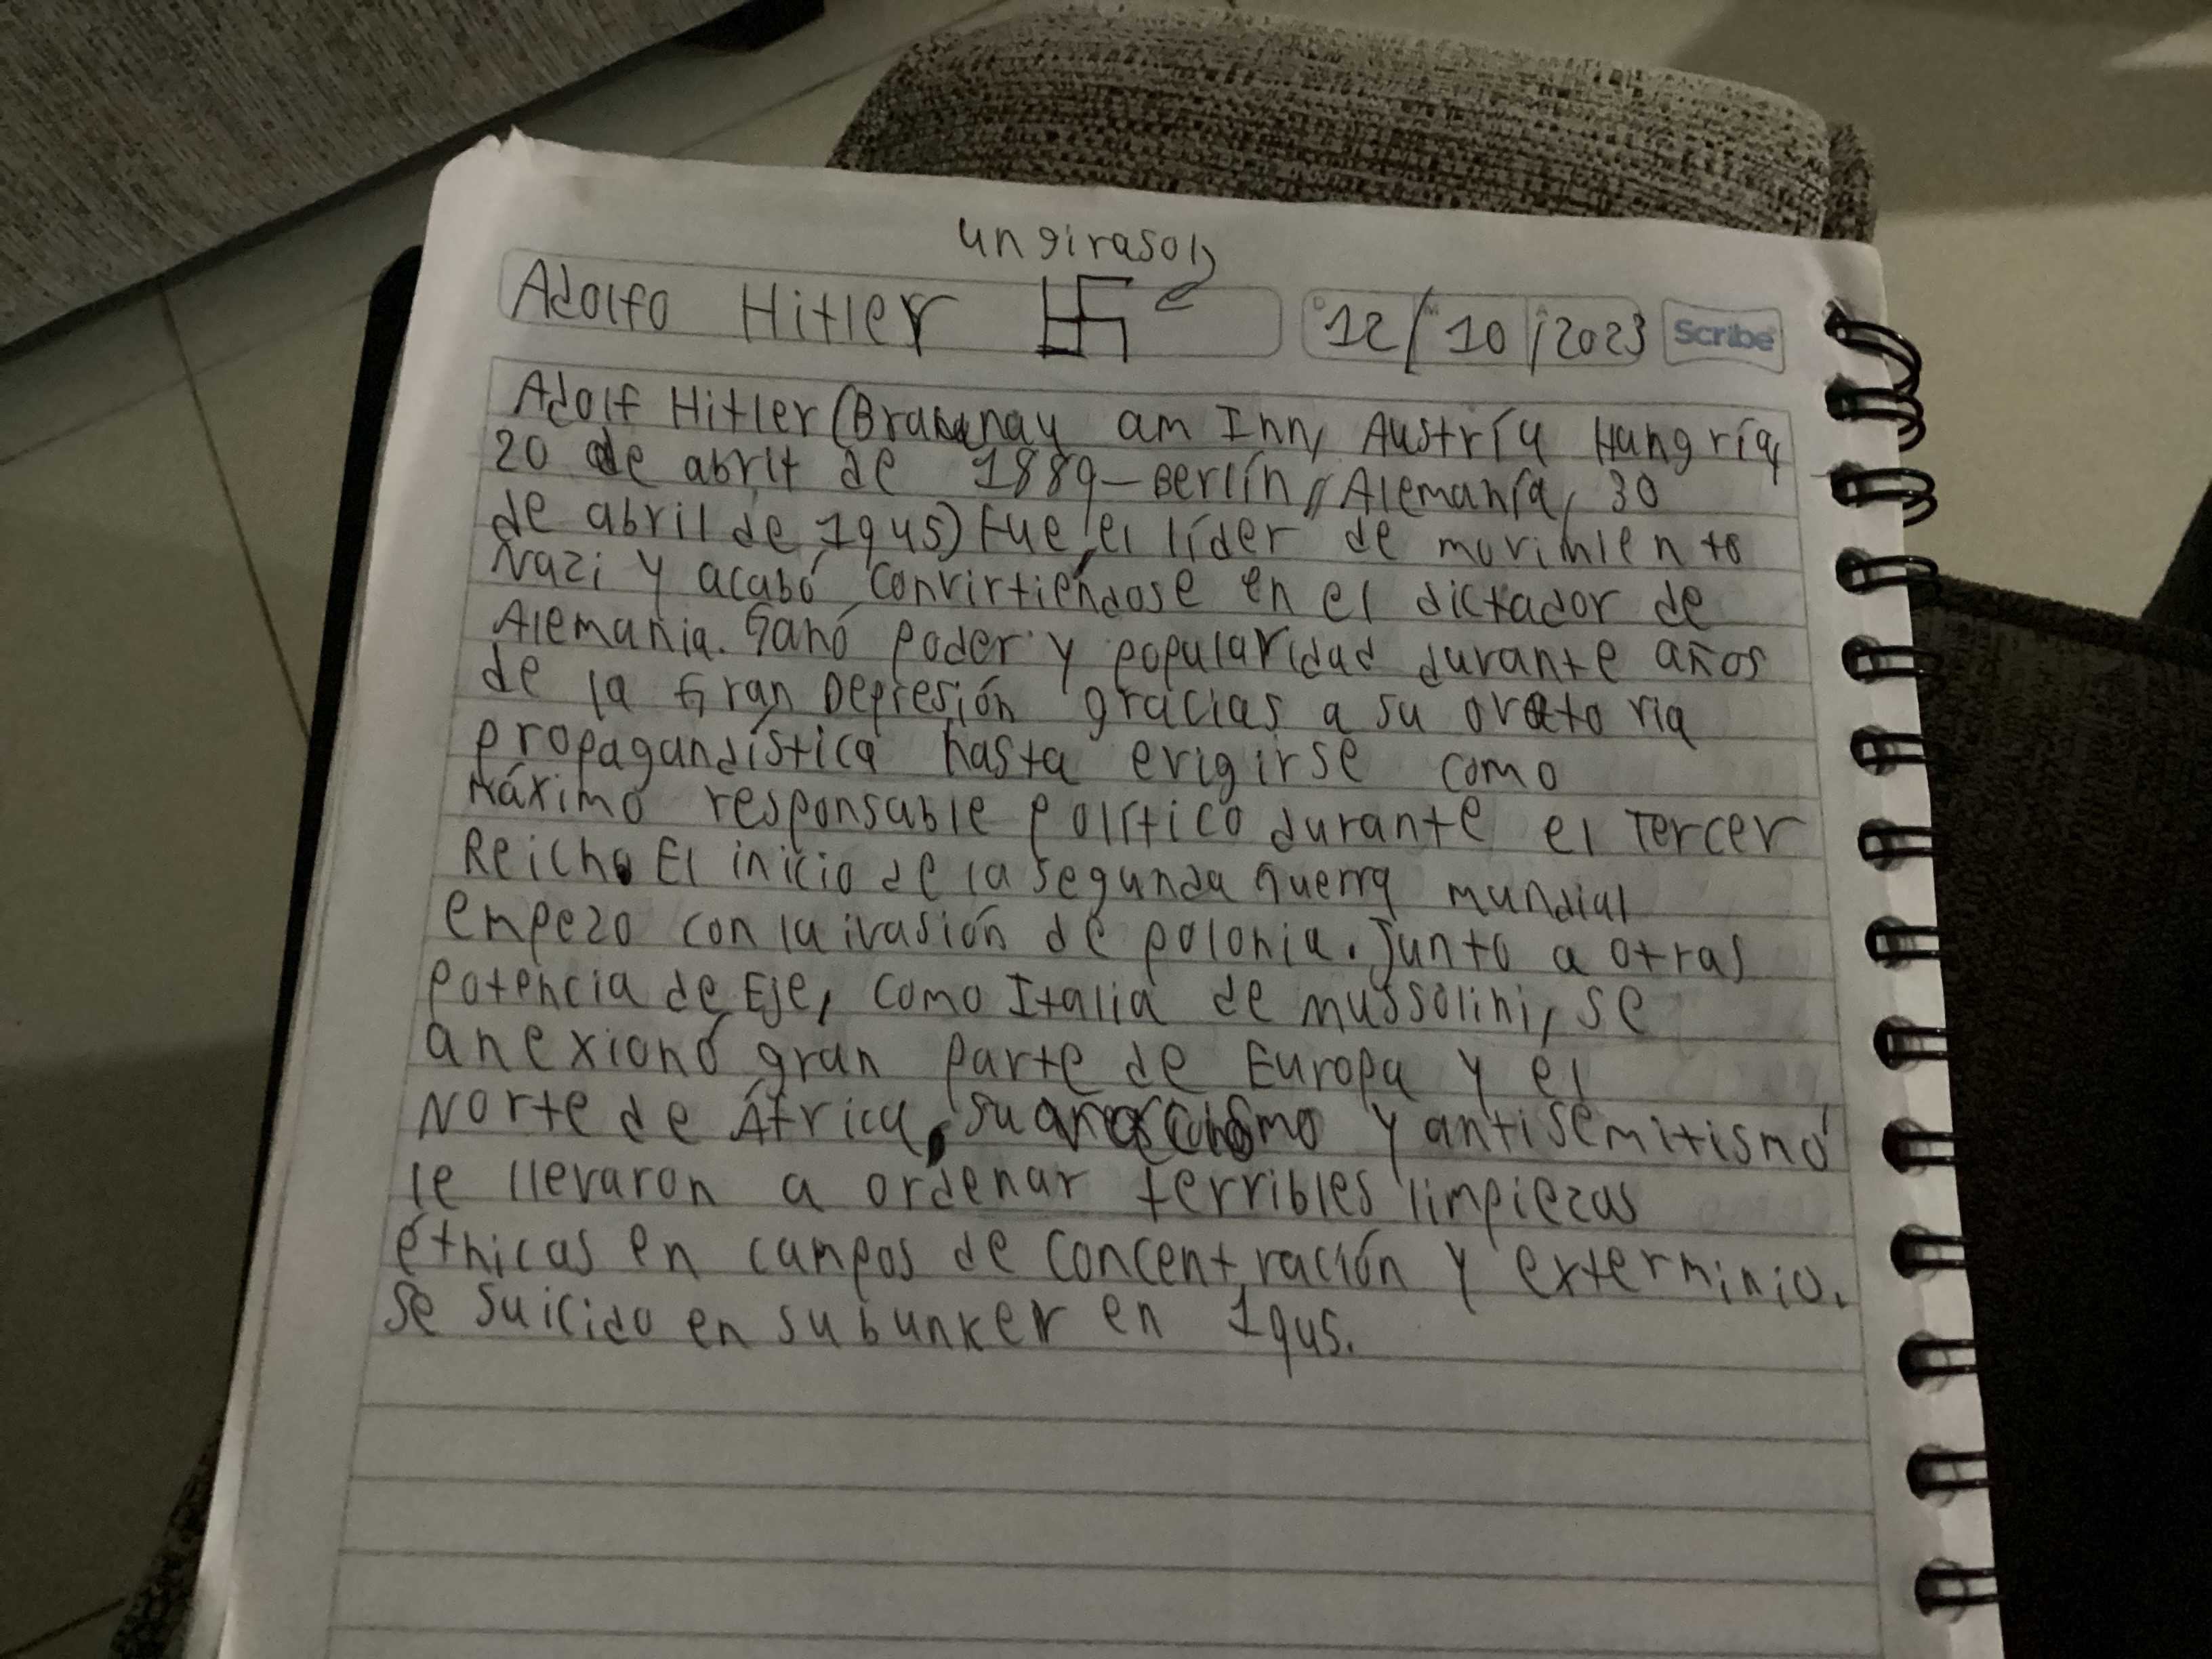 un girasol
Adolfo Hitler
12/10/2023 Scribe
Adolf Hitler (Braunau am Inn, Austría Hungría,
20 de abril de 1889-Berlín, Alemanía, 30
de abril de 1945) Fue el líder de movimiento
Nazi y acabó convirtiéndose en el dictador de
Alemania. Ganó poder y popularidad durante años
de la Gran Depresión gracias a su oratoria
propagandística hasta erigirse como
Máximo responsable político durante el Tercer
Reich. El inicio de la segunda Guerra mundial
empezo con la ivasión de polonia. Junto a otras
potencia de Eje, como Italia de mussolini, se
anexionó gran parte de Europa y el
Norte de África, su y antisemitismo
le llevaron a ordenar terribles limpiezas
étnicas en campos de concentración y exterminio.
Se suicido en su bunker en 1945.